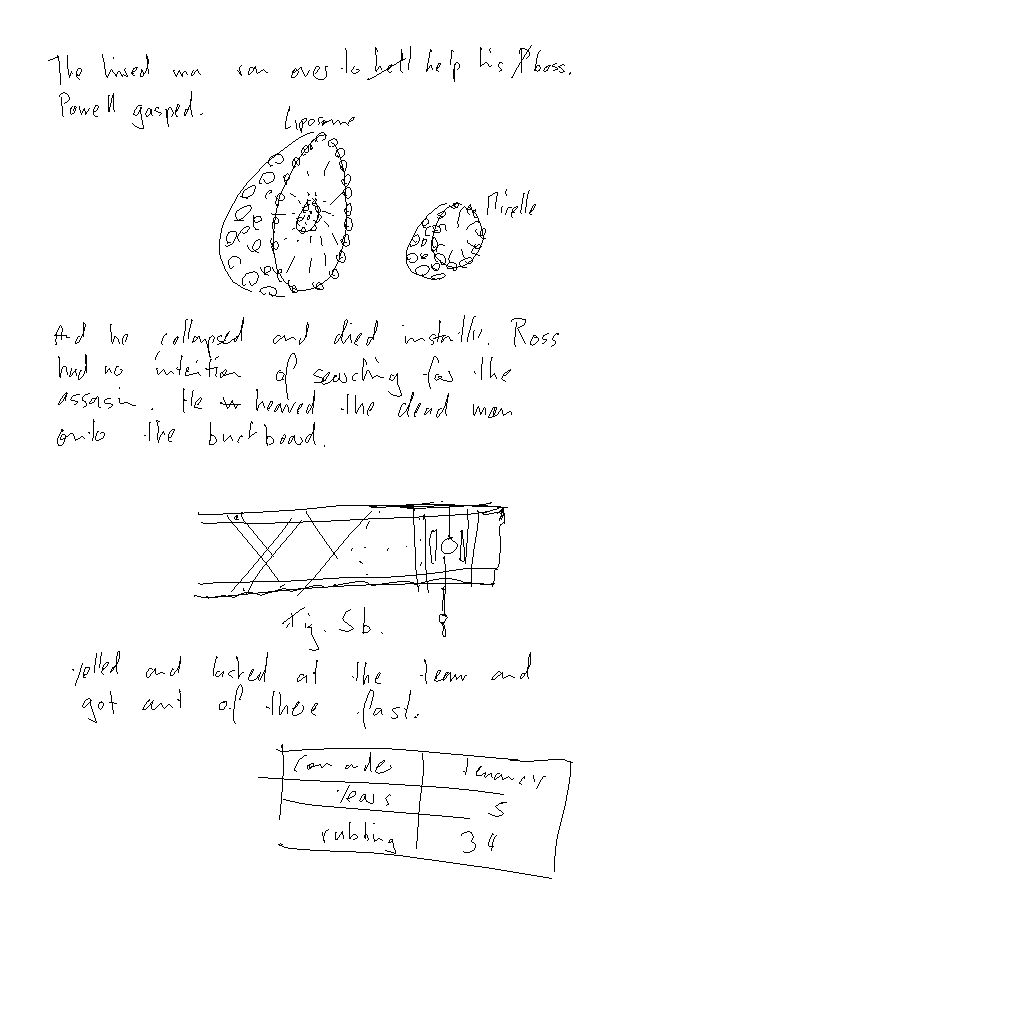 The hired man ran over to hell help his P boss.
Powell gasped.
Liposome
Micelle
And he collapsed and died instantly. Ross
had no intention of searching for the
assasin. He w heaved the dead man
onto the buckboard.
Fig. 5b.
yelled and lashed at the team and
got out of there fast.
tenancy
years 5
rubbing 34